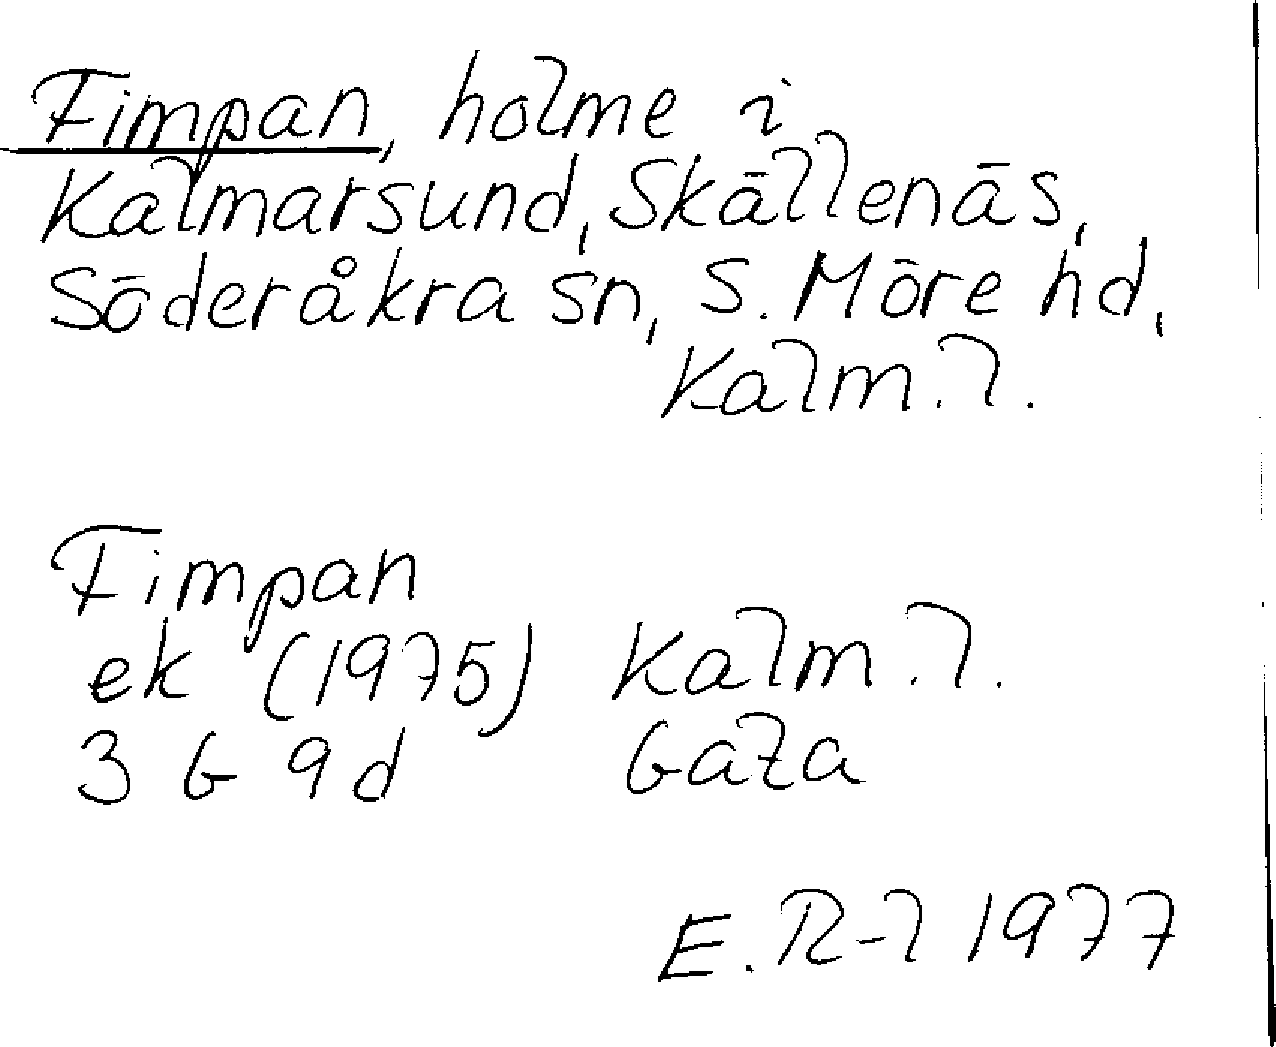 Fimpan, holme i
Kalmarsund, Skällenäs,
Söderåkra sn, S. Möre hd,
Kalm. l.
Fimpan
ek (1975) Kalm. l.
3 G 9d Gaza
E. R-l 1977